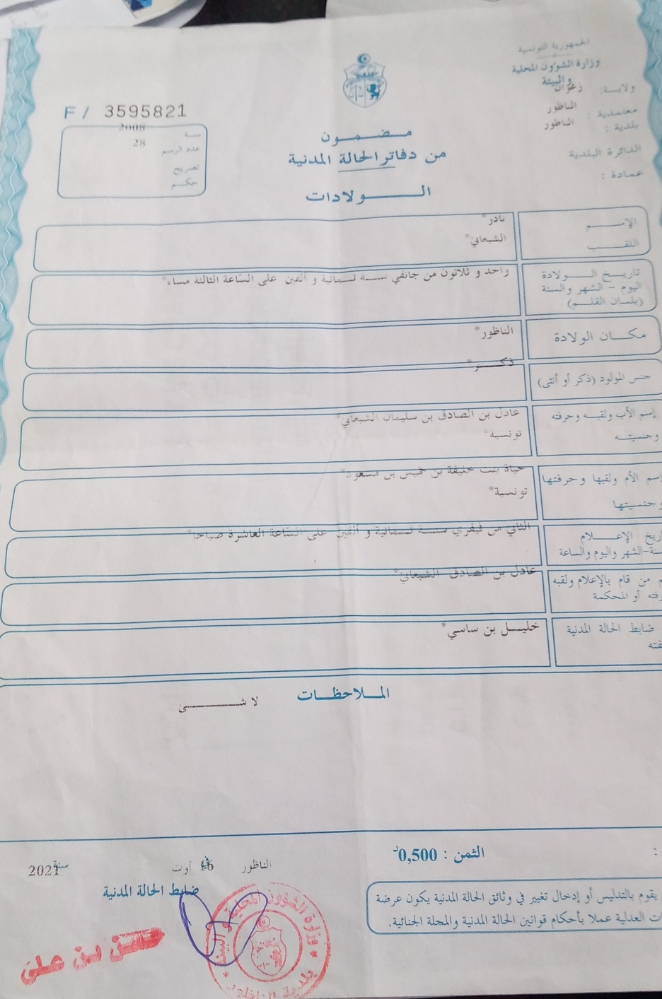 الجمهورية التونسية
وزارة الشؤون المحلية
والبيئة
ولاية: زغوان
معتمدية: الناظور
بلدية: الناظور
الدائرة البلدية
عمادة:
F/ 3595821
سنة 2008
عدد الرسم 28
تصريح
حكم
مضمون
من دفاتر الحالة المدنية
الولادات
الإسم نادر*
اللقب الشيعاني*
تاريخ الولادة
اليوم - الشهر والسنة
(بلسان القلم)
واحد و ثلاثون من جانفي سنة ثمانية و ألفين على الساعة الثالثة مساء*
مكان الولادة الناظور*
جنس المولود (ذكر أو أنثى) ذكر*
إسم الأب ولقبه وحرفته عادل بن الصادق بن سليمان الشيعاني*
وجنسيته تونسية*
إسم الأم ولقبها وحرفتها حياة بنت خليفة بن خميس بن مسعود*
وجنسيتها تونسية*
الإعلام
الشهر واليوم والساعة
الثاني من فيفري سنة ثمانية و ألفين على الساعة العاشرة صباحا*
من قام بالإعلام ولقبه عادل بن الصادق الشيعاني*
أو المحكمة
ضابط الحالة المدنية خليل بن ساسي*
الملاحظات
لا شي
الثمن : 0,500د
الناظور في 16 أوت سنة 2021
ضابط الحالة المدنية
يقوم بالتدليس أو إدخال تغيير في وثائق الحالة المدنية يكون عرضة
العدلية عملا بأحكام قوانين الحالة المدنية والمجلة الجنائية.
وزارة الشؤون المحلية و البيئة
بلدية الناظور
حسن بن علي